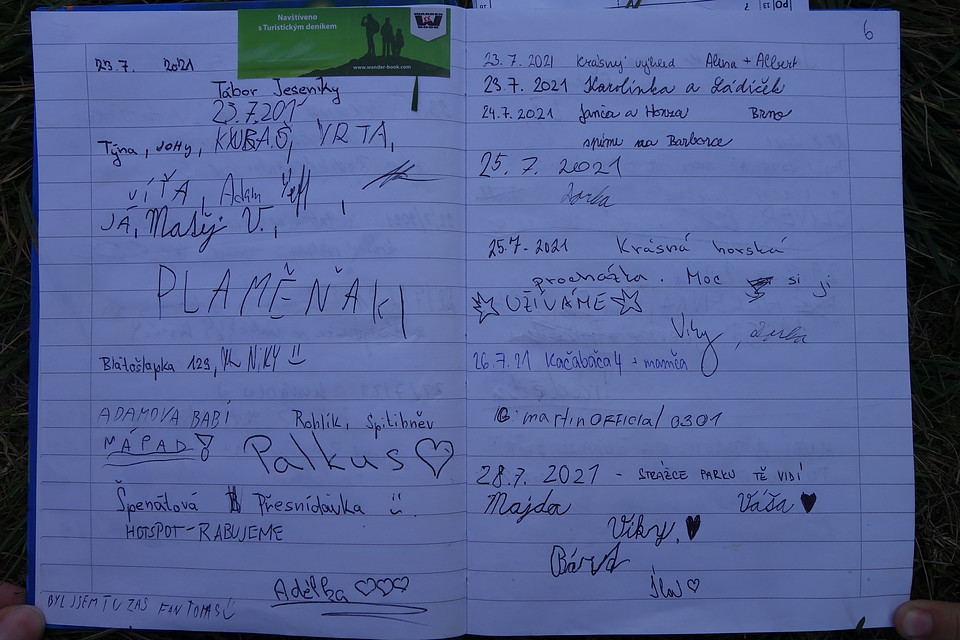 Navštíveno
s Turistickým deníkem
www.wander-book.com
23.7. 2021
Tábor Jeseníky
23.7.201
Týna, JOHY, KUBAŠ, VRTA,
VÍŤA, Adam Yeff,
JÁ, Matěj V.,
PLAMĚŇÁKI
Blátošlapka 123, NIKY
ADAMOVA BABÍ
Rohlík, Spitibněv
NÁPAD!
Palkus
Špenátová Přesnídávka
HOTSPOT-RABUJEME
Adélka
BYL JSEM TU ZAS FANTOMAS
6
23.7. 2021 Krásný výhled Alena + Albert
23.7. 2021 Karolínka a Ládíček
24.7.2021 Janča a Honza Brno
spíme na Barborce
25. 7. 2021
25.7. 2021 Krásná horská
procházka. Moc si ji
UŽÍVÁME
Viky,
26.7.21 Kačabača4 + mamča
martinOFFICIAL 0301
28.7. 2021 - STRÁŽCE PARKU TĚ VIDÍ
Majda Váša
Viky,
Bára